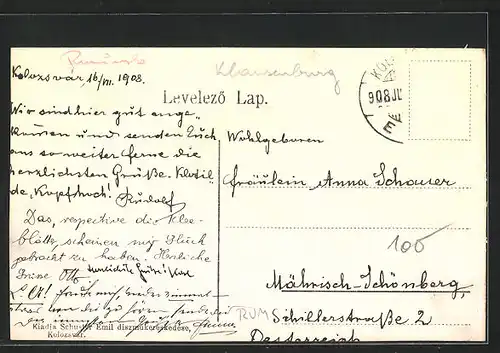 Klausenburg
Kolozsvár, 16/VII. 1908.
Levelező Lap.
908 JUL
Wir sind hier gut ange-
kommen und senden Euch
aus so weiter ferne die
herzlichsten Grüße. Klotil-
de, "Kopfhoch!" Rudolf
Das, respective die Klee-
blätter scheinen mir Glück
gebracht zu haben. Herzliche
Grüße Otto
L. A.!
Wohlgeboren
Fräulein Anna Schauer
100
Mährisch-Schönberg,
RUM Schillerstraße 2
Oesterreich
Kiadja Schuster Emil diszmükereskedése,
Kolozsvár.